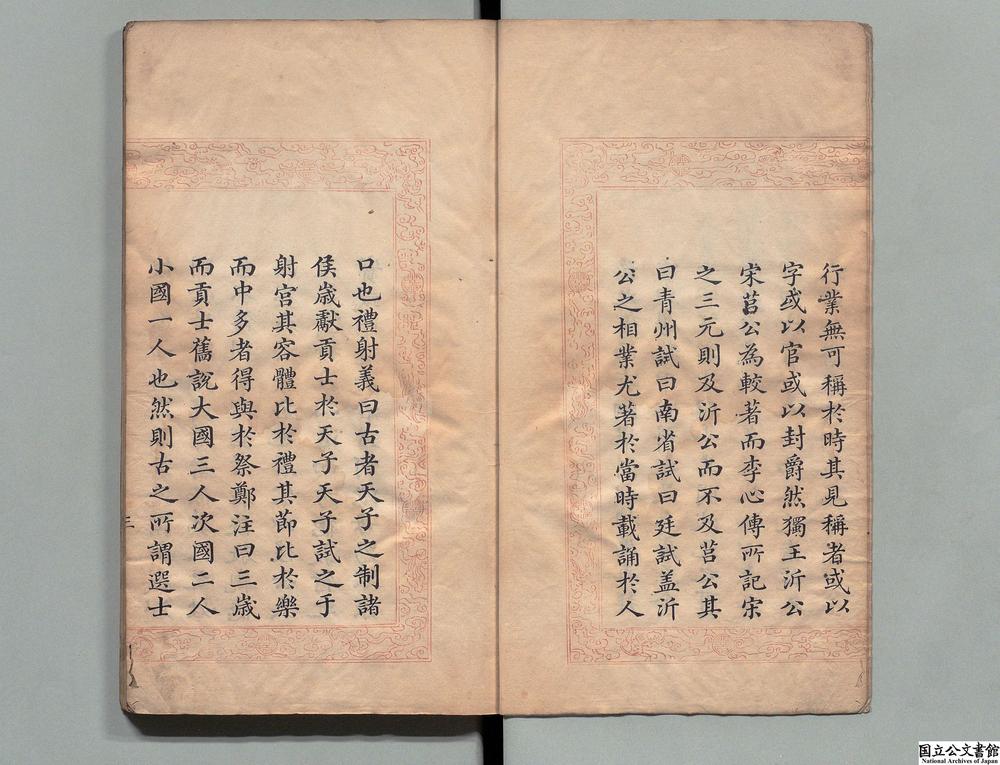 行業無可稱於時其見稱者或以
字或以官或以封爵然獨王沂公
宋莒公為較著而李心傳所記宋
之三元則及沂公而不及莒公其
曰青州試曰南省試曰廷試盖沂
公之相業尤著於當時載誦於人
口也禮射義曰古者天子之制諸
侯歲獻貢士於天子天子試之于
射宮其容體比於禮其節比於樂
而中多者得與於祭鄭注曰三歲
而貢士舊說大國三人次國二人
小國一人也然則古之所謂選士
三
国立公文書館
National Archives of Japan